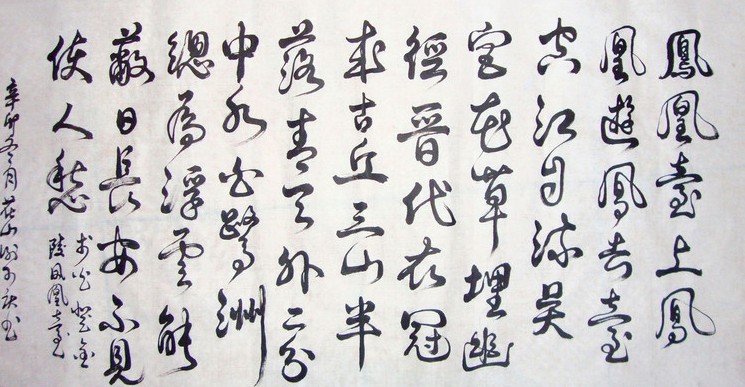 鳳凰臺上鳳
凰遊鳳去臺
空江自流吳
宮花草埋幽
徑晉代衣冠
成古丘三山半
落青天外二水
中分白鷺洲
總為浮雲能
蔽日長安不見
使人愁
登金
陵鳳凰臺
辛卯 月 山